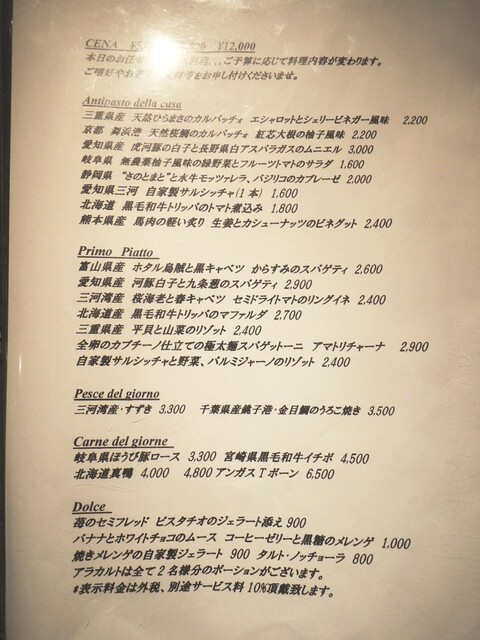 CENA ¥12,000
本日のお任せ ご予算に応じて料理内容が変わります。
ご嗜好やお をお申し付けくださいませ。
Antipasto della casa
三重県産 天然ひらまさのカルパッチォ エシャロットとシェリービネガー風味 2,200
京都 舞浜港 天然桜鯛のカルパッチォ 紅芯大根の柚子風味 2,200
愛知県産 虎河豚の白子と長野県白アスパラガスのムニエル 3,000
岐阜県 無農薬柚子風味の緑野菜とフルーツトマトのサラダ 1,600
静岡県 “さのとまと”と水牛モッツァレラ、バジリコのカプレーゼ 2,000
愛知県三河 自家製サルシッチャ(1本) 1,600
北海道 黒毛和牛トリッパのトマト煮込み 1,800
熊本県産 馬肉の軽い炙り 生姜とカシューナッツのビネグット 2,400
Primo Piatto
富山県産 ホタル烏賊と黒キャベツ からすみのスパゲティ 2,600
愛知県産 河豚白子と九条葱のスパゲティ 2,900
三河湾産 桜海老と春キャベツ セミドライトマトのリングイネ 2,400
北海道産 黒毛和牛トリッパのマファルダ 2,700
三重県産 平貝と山菜のリゾット 2,400
全卵のカプチーノ仕立ての極太麺スパゲットーニ アマトリチャーナ 2,900
自家製サルシッチャと野菜、パルミジャーノのリゾット 2,400
Pesce del giorno
三河湾産・すずき 3,300 千葉県産銚子港・金目鯛のうろこ焼き 3,500
Carne del giorne
岐阜県ほうび豚ロース 3,300 宮崎県黒毛和牛イチボ 4,500
北海道真鴨 4,000 4,800アンガスTボーン 6,500
Dolce
苺のセミフレッド ピスタチオのジェラート添え 900
バナナとホワイトチョコのムース コーヒーゼリーと黒糖のメレンゲ 1,000
焼きメレンゲの自家製ジェラート 900 タルト・ノッチョーラ 800
アラカルトは全て2名様分のポーションがございます。
*表示料金は外税、別途サービス料10%頂戴致します。